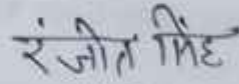 रंजीत सिंह